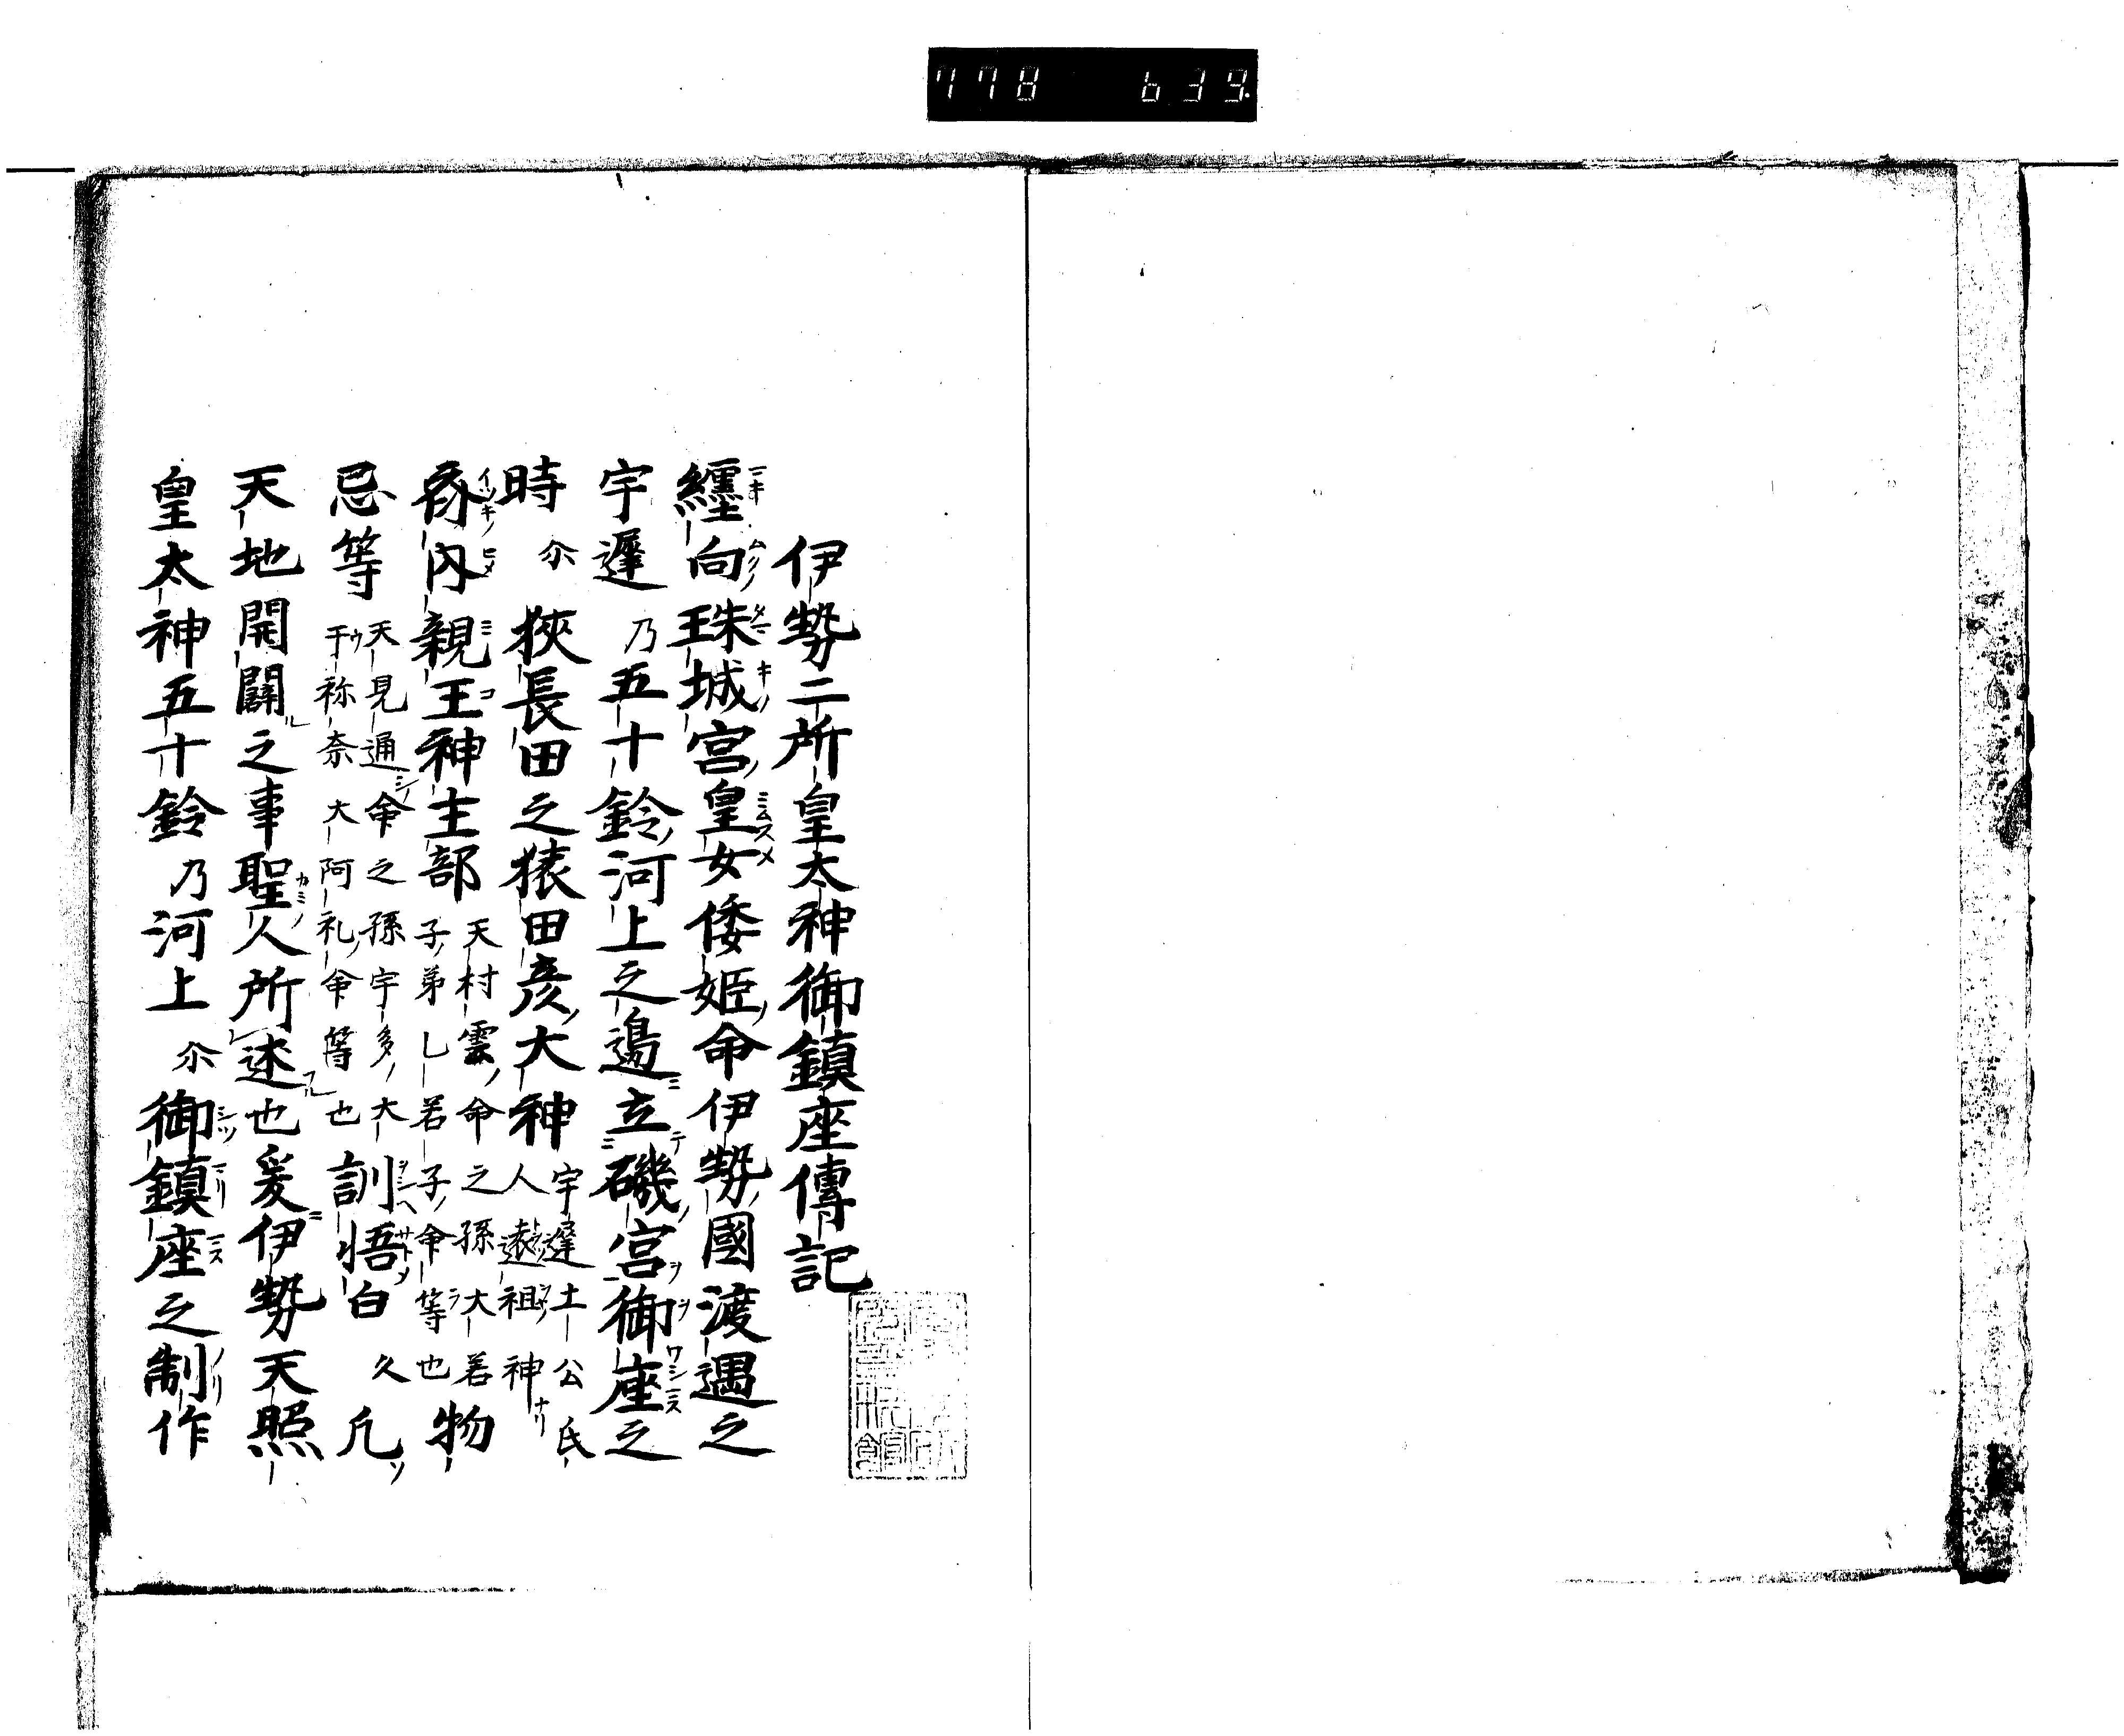 778 639.
伊勢二所皇太神御鎮座傳記
纏向珠城宮皇女倭姫命伊勢國渡遇之
宇遲乃五十鈴河上之邊立磯宮御座之
時尒狹長田之猿田彦大神宇遲土公氏人遠祖神ナリ
斎内親王神主部天村雲命之孫大若子弟乙若子命等也物
忌等天見通命之孫宇多大于祢奈大阿礼命等也訓悟白久凡
天地開闢之事聖人所述也爰伊勢天照
皇太神五十鈴乃河上尒御鎮座之制作